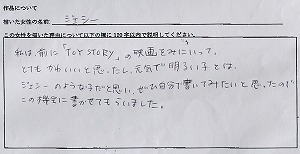 作品について
描いた女性の名前: ジェシー
この女性を描いた理由について以下の欄に100字以内で説明してください。
私は、前に「TOY STORY」の映画をみにいって、
とてもかわいいと思ったし、元気で明るい子とは、
ジェシーのような子だと思い、ぜひ自分で書いてみたいと思ったので
この機会に書かせてもらいました。